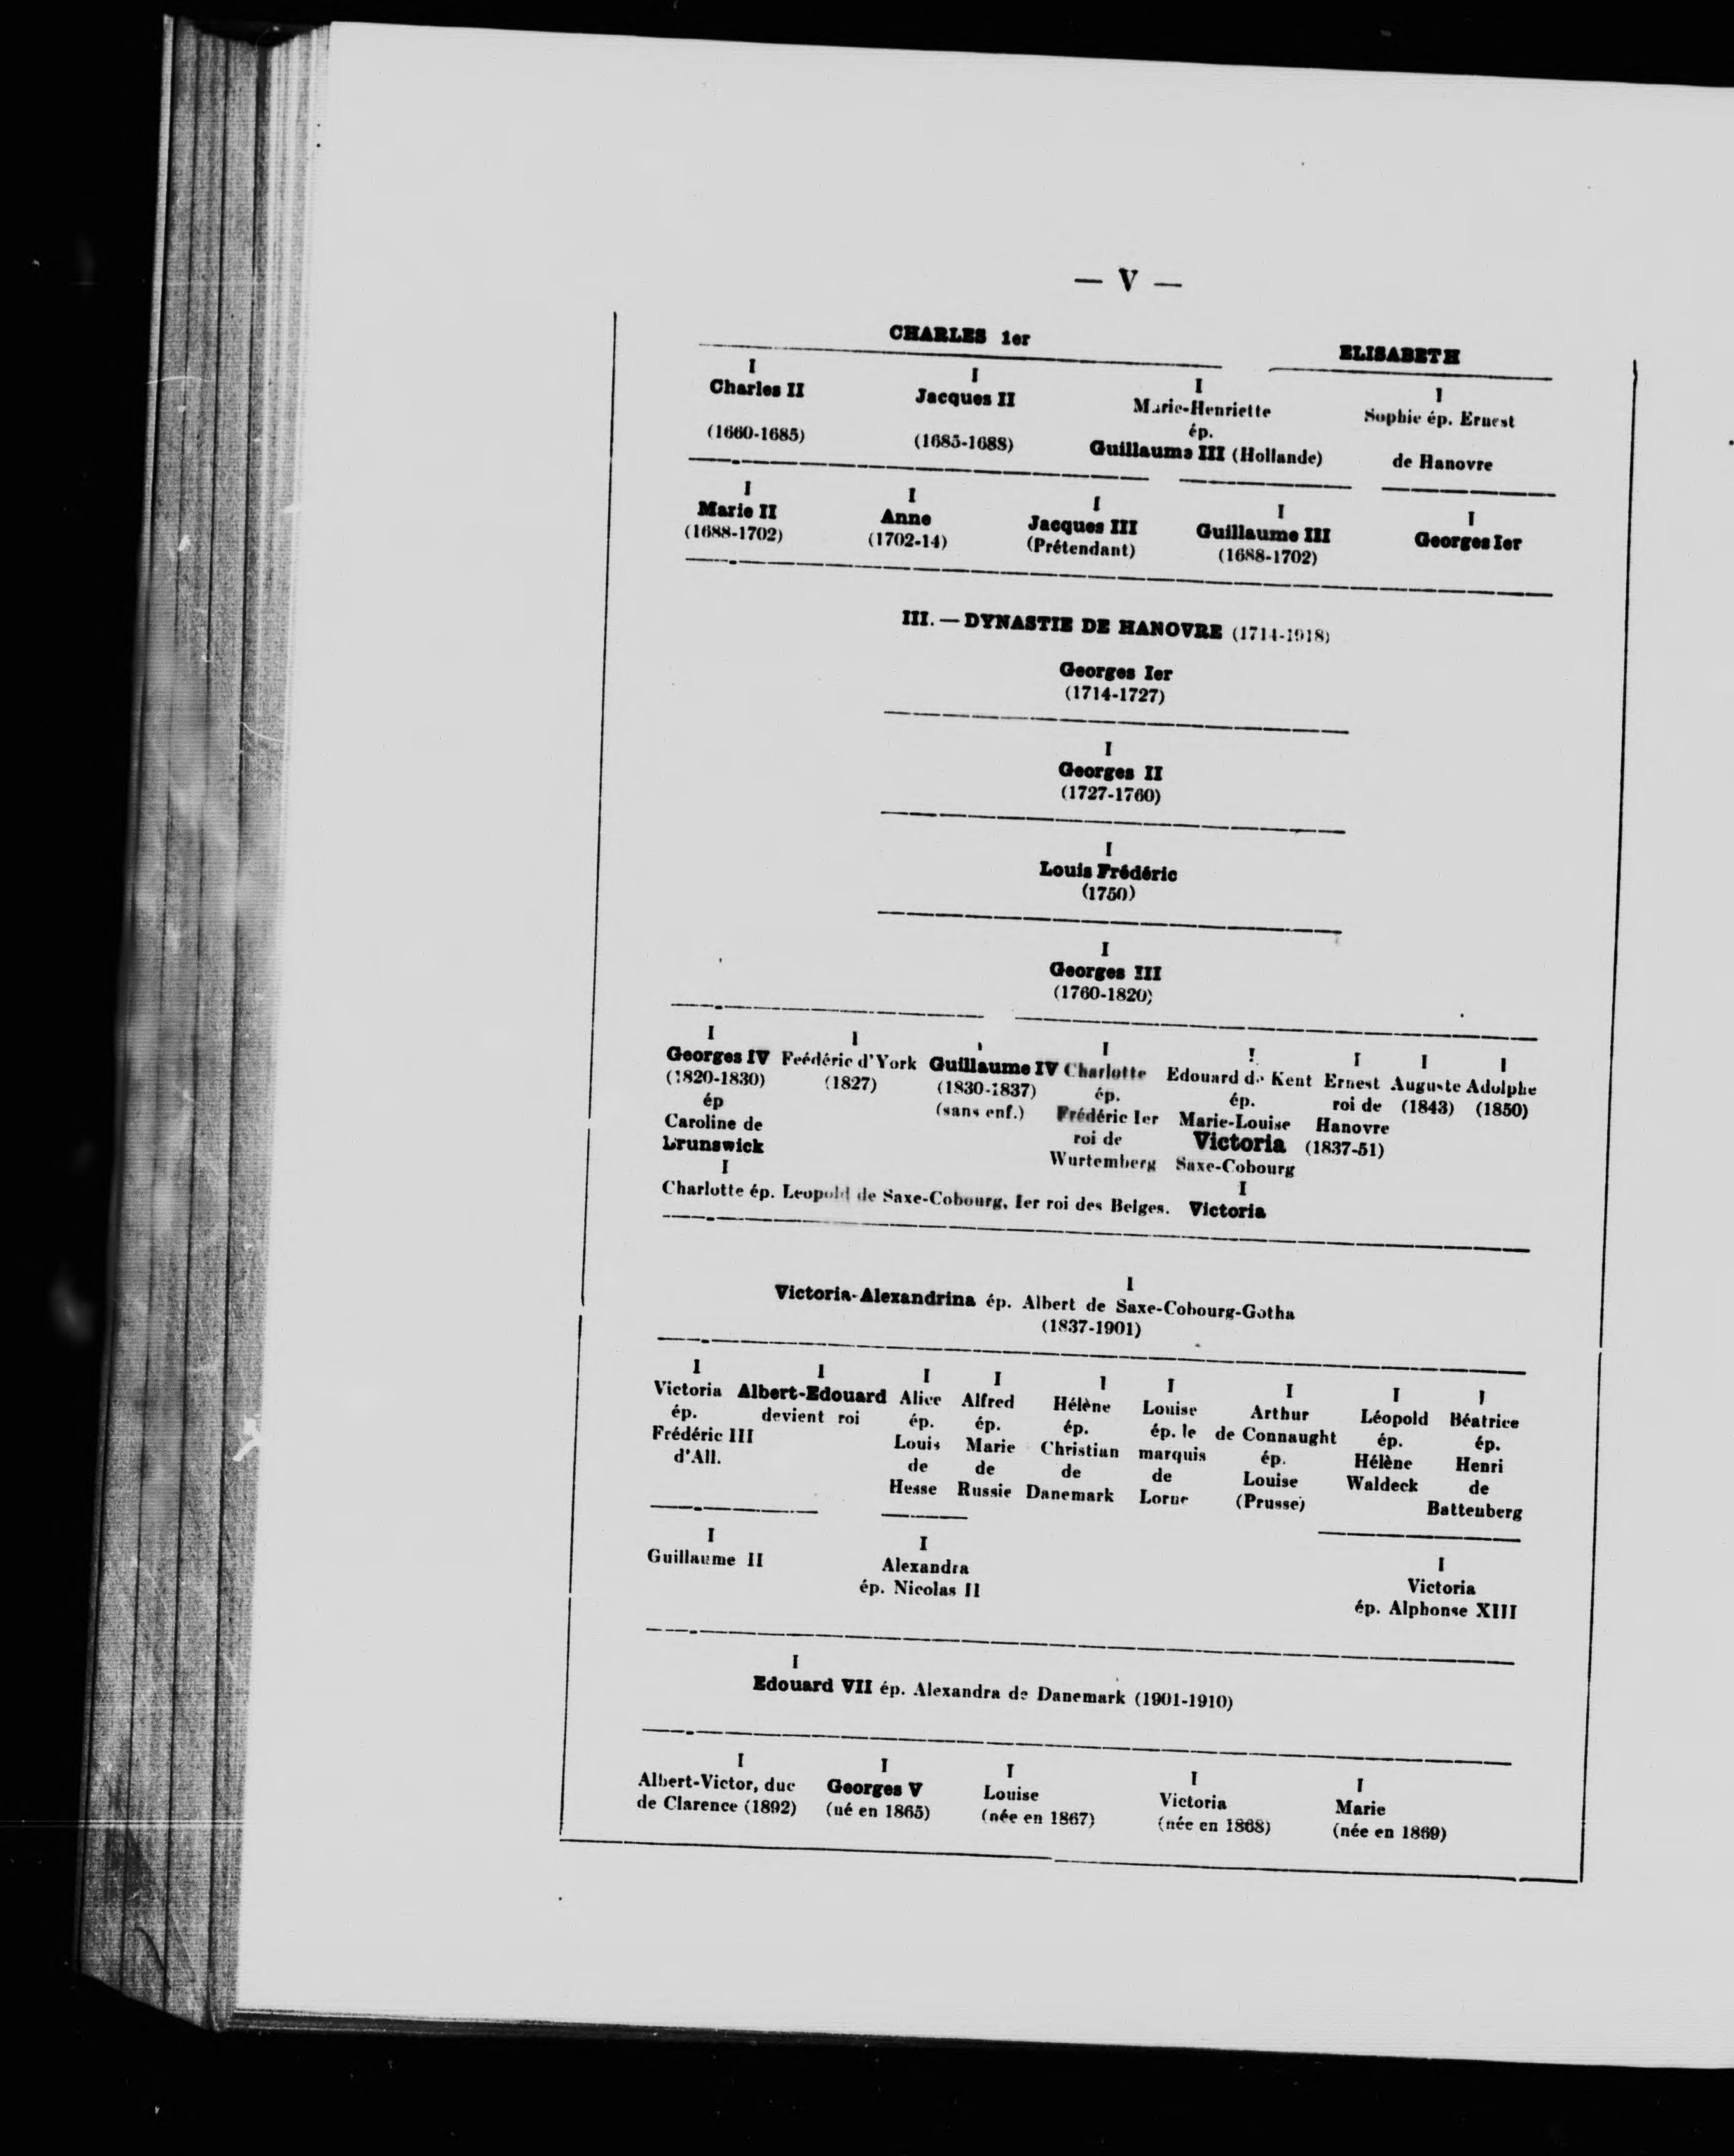 — V —
CHARLES 1er ELISABETH
I I I I
Charles II Jacques II Marie-Henriette Sophie ép. Ernest
ép.
(1660-1685) (1685-1688) Guillaume III (Hollande) de Hanovre
I I I I I
Marie II Anne Jacques III Guillaume III Georges Ier
(1688-1702) (1702-14) (Prétendant) (1688-1702)
III. — DYNASTIE DE HANOVRE (1714-1918)
Georges Ier
(1714-1727)
I
Georges II
(1727-1760)
I
Louis Frédéric
(1750)
I
Georges III
(1760-1820)
I I I I I I I I
Georges IV Feédéric d'York Guillaume IV Charlotte Edouard de Kent Ernest Auguste Adolphe
(1820-1830) (1827) (1830-1837) ép. ép. roi de (1843) (1850)
ép (sans enf.) Frédéric Ier Marie-Louise Hanovre
Caroline de roi de Victoria (1837-51)
Brunswick Wurtemberg Saxe-Cobourg
I I
Charlotte ép. Leopold de Saxe-Cobourg, Ier roi des Belges. Victoria
I
Victoria-Alexandrina ép. Albert de Saxe-Cobourg-Gotha
(1837-1901)
I I I I I I I I I
Victoria Albert-Edouard Alice Alfred Hélène Louise Arthur Léopold Béatrice
ép. devient roi ép. ép. ép. ép. le de Connaught ép. ép.
Frédéric III Louis Marie Christian marquis ép. Hélène Henri
d'All. de de de de Louise Waldeck de
Hesse Russie Danemark Lorne (Prusse) Battenberg
I I I
Guillaume II Alexandra Victoria
ép. Nicolas II ép. Alphonse XIII
I
Edouard VII ép. Alexandra de Danemark (1901-1910)
I I I I I
Albert-Victor, duc Georges V Louise Victoria Marie
de Clarence (1892) (né en 1865) (née en 1867) (née en 1868) (née en 1869)